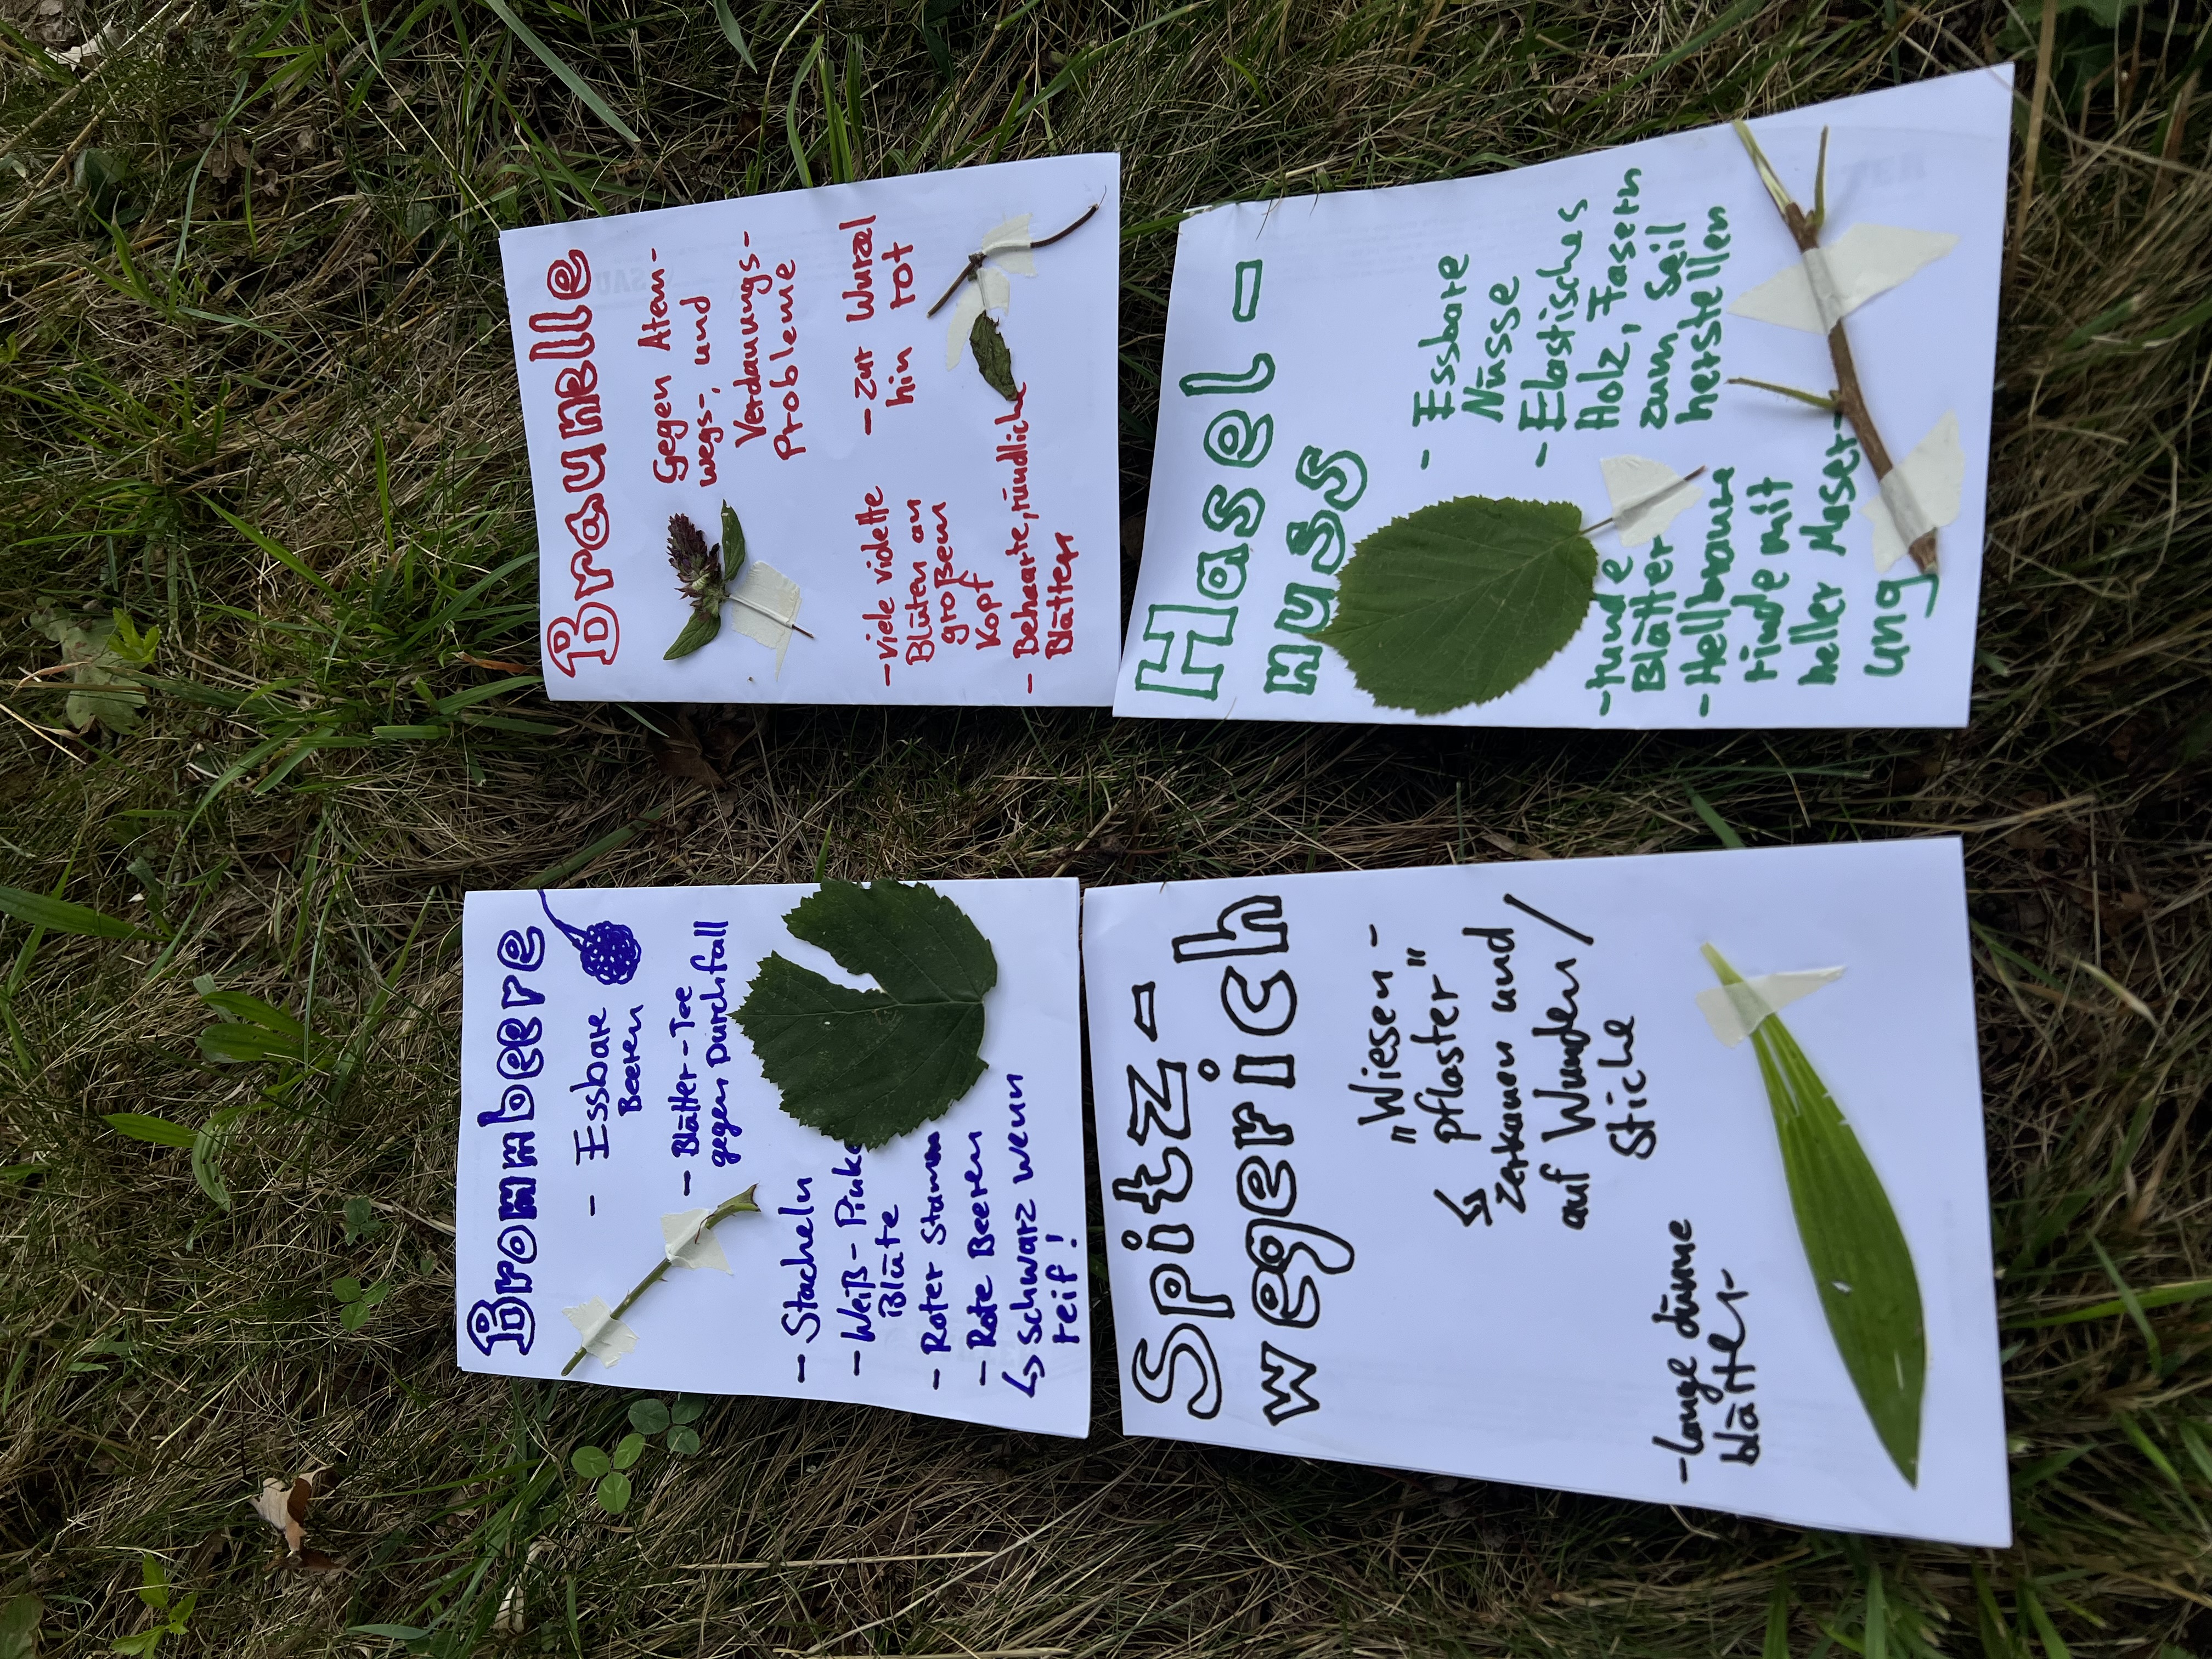 Brombeere
- Essbare
Beeren
- Blätter-Tee
gegen Durchfall
- Stacheln
- Weiß-Pinke
Blüte
- Roter Stamm
- Rote Beeren
↳ Schwarz wenn
reif!
Braunelle
Gegen Atem-
wegs-, und
Verdauungs-
Probleme
- viele violette
Blüten an
großem
Kopf
- Behaarte, rundliche
Blätter
- zur Wurzel
hin rot
Spitz-
wegerich
"Wiesen-
pflaster"
↳ zerkauen und
auf Wunden/
Stiche
- lange dünne
blätter
Hasel-
nuss
- Essbare
Nüsse
- Elastisches
Holz, Fasern
zum Seil
herstellen
- runde
Blätter
- Hellbraune
rinde mit
heller Maser-
ung